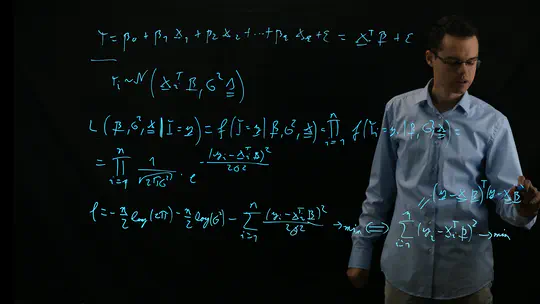 Y = β₀ + β₁ X₁ + β₂ X₂ + ... + βₖ Xₖ + ε = X^T β + ε
Yᵢ ~ N(Xᵢ^T β, σ² 1)
L(β, σ², X | Y = y) = f(Y = y | β, σ², X) = ∏_{i=1}^{n} f(Yᵢ = yᵢ | β, σ² 1) =
= ∏_{i=1}^{n} 1/√(2πσ²) · e^{-(yᵢ - Xᵢ^T β)²/2σ²}
// (y - Xβ)^T (y - Xβ)
l = -n/2 log(2π) - n/2 log(σ²) - ∑_{i=1}^{n} (yᵢ - Xᵢ^T β)²/2σ² → min ⟺ ∑_{i=1}^{n} (yᵢ - Xᵢ^T β)² → min